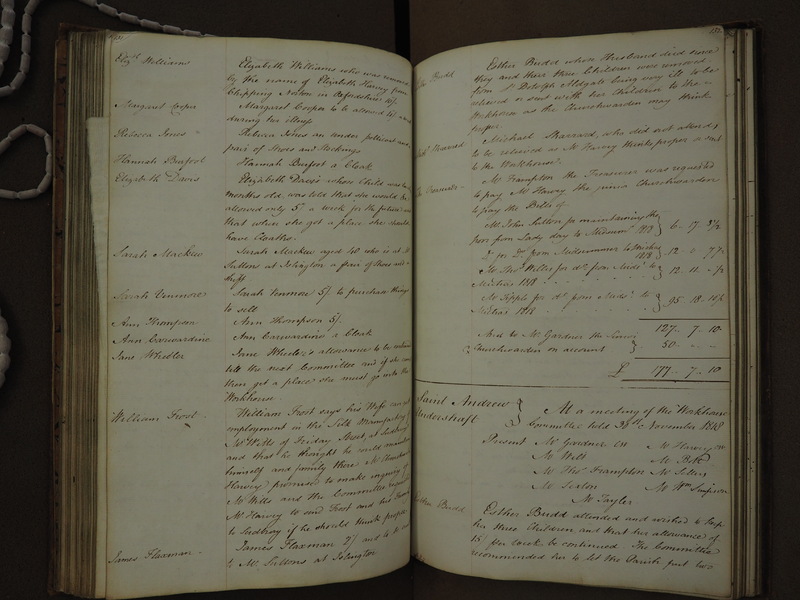 Eliz.th Williams
Elizabeth Williams who was removed
by the name of Elizabeth Harvey from
Chipping Norton in Oxfordshire 10/.
Margaret Cooper
Margaret Cooper to be allowed
during her illness
Rebecca Jones
Rebecca Jones an under petticoat and
pair of Shoes and Stockings
Hannah Burfoot
Hannah Burfoot a Cloak
Elizabeth Davis
Elizabeth Davis whose Child was
months old, was told that she would be
allowed only 5/ a week for the future and
that when she got a place she should
have Cloaths.
Sarah Mackew
Sarah Mackew aged 40 who is at Mr
Suttons at Islington a pair of Shoes and a
shift
Sarah Venmore
Sarah Venmore 5/. to purchase things
to sell
Ann Thompson
Ann Thompson 5/.
Ann Carwardine
Ann Carwardine a Cloak
Jane Wheeler
Jane Wheeler's allowance to be continued
till the next Committee and if she
then get a place she must go into the
Workhouse.
William Frost
William Frost says his Wife can get
employment in the Silk Manufactory of
Mr Wells of Friday Street, at Sudbury
and that he thought he could maintain
himself and family there Mr Churchwarden
Harvey promised to make enquiry of
Mr Wells and the Committee requested
Mr Harvey to send Frost and his Family
to Sudbury if he should think proper
James Flaxman
James Flaxman 2/ and to
to Mr Suttons at Islington
Esther Budd
Esther Budd whose Husband died since
they and their three Children were removed
from St Botolph Aldgate being very ill to be
relieved or sent with her Children to the
Workhouse as the Churchwarden may think
proper
Sharrard
Michael Sharrard, who did not attend,
to be relieved as Mr Harvey thinks proper or sent
to the Workhouse.
The Treasurer
Mr Frampton the Treasurer was requested
to pay Mr Harvey the junior Churchwarden
to pay the Bills of
Mr John Sutton for maintaining the
Poor from Lady day to Midsumr 1818 } 6 .. 17 .. 9½
Do for Do from Midsummer to Michas 1818 } 12 .. .. 7 ..
Mr Thos Willis for do from Mids to
Michas 1818 } 12 .. 11 ..
Mr Tipple for do from Mids to
Michas 1818 } 95 .. 18 ..
127 .. 7 .. 10
And to Mr Gardner the Senior
Churchwarden on account } 50 .. - .. -
£ 177 .. 7 .. 10
Saint Andrew
Undershaft }
At a meeting of the Workhouse
Committee held November 1818
Present Mr Gardner CW Mr Harvey CW
Mr Witt Mr Bott
Mr Thos Frampton Mr Sellers
Mr Sexton Mr Wm Simpson
Mr Tayler
Esther Budd
Esther Budd attended and wished to keep
her three Children and that her allowance of
15/ per week be continued. The Committee
recommended her to let the Parish put two